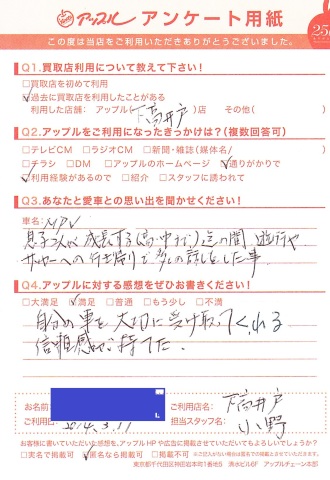 アップル アンケート用紙
この度は当店をご利用いただきありがとうございました。
Q1.買取店利用について教えて下さい!
□買取店を初めて利用
☑過去に買取店を利用したことがある
利用した店舗: アップル(下高井戸)店 その他( )
Q2.アップルをご利用になったきっかけは?(複数回答可)
□テレビCM □ラジオCM □新聞・雑誌(媒体名/ )
□チラシ □DM □アップルのホームページ ☑通りがかりで
☑利用経験があるので □紹介 □スタッフに誘われて
Q3.あなたと愛車との思い出を聞かせください!
車名: MPV
息子2人が成長する(高・中まで)迄の間、遊行や
サッカーへの行き帰りで多くの話しをした事
Q4.アップルに対する感想をぜひお書きください!
□大満足 ☑満足 □普通 □もう少し □不満
自分の車を大切に受け取ってくれる
信頼感が持てた.
お名前
ご利用店名: 下高井戸
ご利用日 2014.3.17
担当スタッフ名: 小野
お客様に書いていただいた感想を、アップルHPや広告に掲載させていただいてもよろしいでしょうか?
□実名で掲載可 ☑匿名なら掲載可 □掲載不可
東京都千代田区神田岩本町1番地5 清水ビル6F アップルチェーン本部